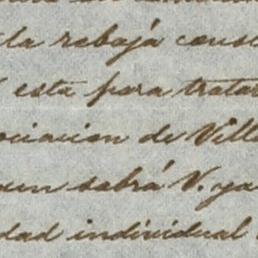 la rebajá cons
esta para tratar
ociacion de Ville
uen sabrá V. ya
dad individual